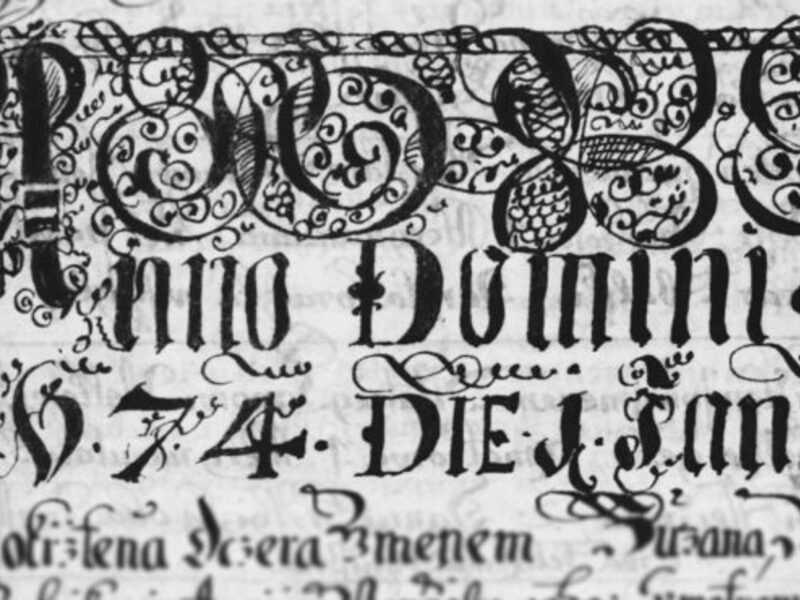 Anno Domini
74. DIE. 1. Jan
okrztena Dczera Zmenem Zuzana,